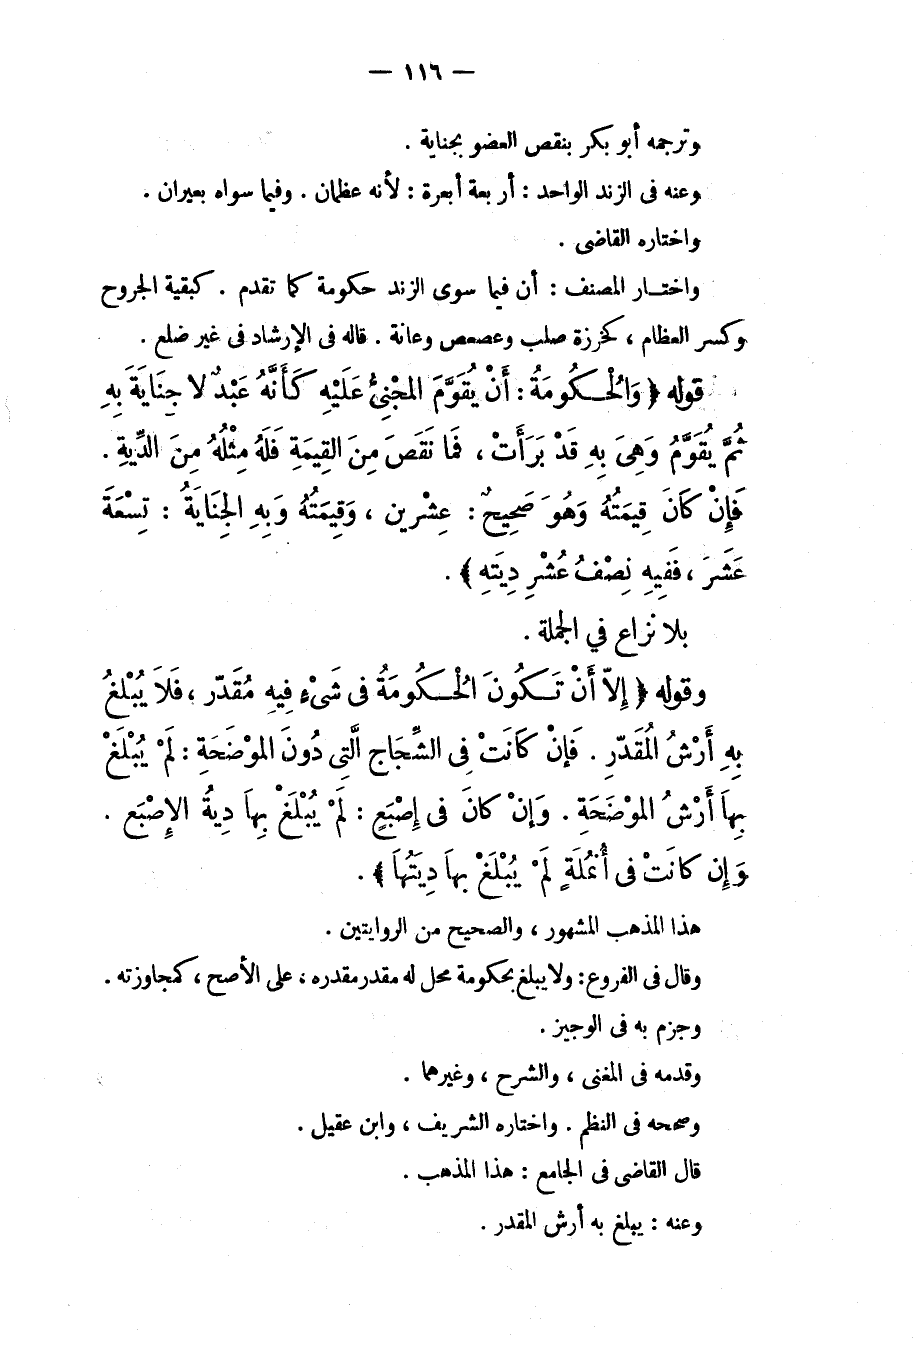 — ١١٦ —
وترجمه أبو بكر بنقص العضو بجناية .
وعنه فى الزند الواحد : أربعة أبعرة : لأنه عظمان . وفيما سواه بعيران .
واختاره القاضى .
واختــار المصنف : أن فيما سوى الزند حكومة كما تقدم . كبقية الجروح
وكسر العظام ، كخرزة صلب وعصعص وعانة . قاله فى الإرشاد فى غير ضلع .
قوله ﴿ وَالْحُـكُومَةُ : أَنْ يُقَوَّمَ المجْنِىُّ عَلَيْهِ كَأَنَّهُ عَبْدٌ لا جِنَايَةَ بِهِ
ثُمَّ يُقَوَّمُ وَهِىَ بِهِ قَدْ بَرَأَتْ ، فَمَا نَقَصَ مِنَ القِيمَةِ فَلَهُ مِثْلُهُ مِنَ الدِّيةِ .
فَإِنْ كَانَ قِيمَتُهُ وَهُوَ صَحِيحٌ : عِشْرِين ، وَقِيمَتُهُ وَبِهِ الجِنَايَةُ : تِسْعَةَ
عَشَرَ ، فَفِيهِ نِصْفُ عُشْرِ دِيَتِهِ ﴾ .
بلا نزاع في الجملة .
وقوله ﴿ إِلاَّ أَنْ تَـكُونَ الْحُـكُومَةُ فى شَىْءٍ فِيهِ مُقَدّر ، فَلاَ يُبْلغُ
بِهِ أَرْشُ المُقَدّرِ . فَإِنْ كَانَتْ فِى الشِّجَاجِ الَّتِى دُونَ الموْضَحَةِ : لَمْ يُبْلَغْ
بِهاَ أَرْشُ الموْضَحَةِ . وَإِنْ كانَ فى إِصْبَعٍ : لَمْ يُبْلَغْ بِهاَ دِيةُ الإِصْبَعِ .
وَإِن كانَتْ فى أُنْمُلَةٍ لَمْ يُبْلَغْ بهاَ دِيَتُهَا ﴾ .
هذا المذهب المشهور ، والصحيح من الروايتين .
وقال فى الفروع : ولا يبلغ بحكومة محل له مقدر مقدره ، على الأصح ، كمجاوزته .
وجزم به فى الوجيز .
وقدمه فى المغنى ، والشرح ، وغيرهما .
وصححه فى النظم . واختاره الشريف ، وابن عقيل .
قال القاضى فى الجامع : هذا المذهب .
وعنه : يبلغ به أرش المقدر .